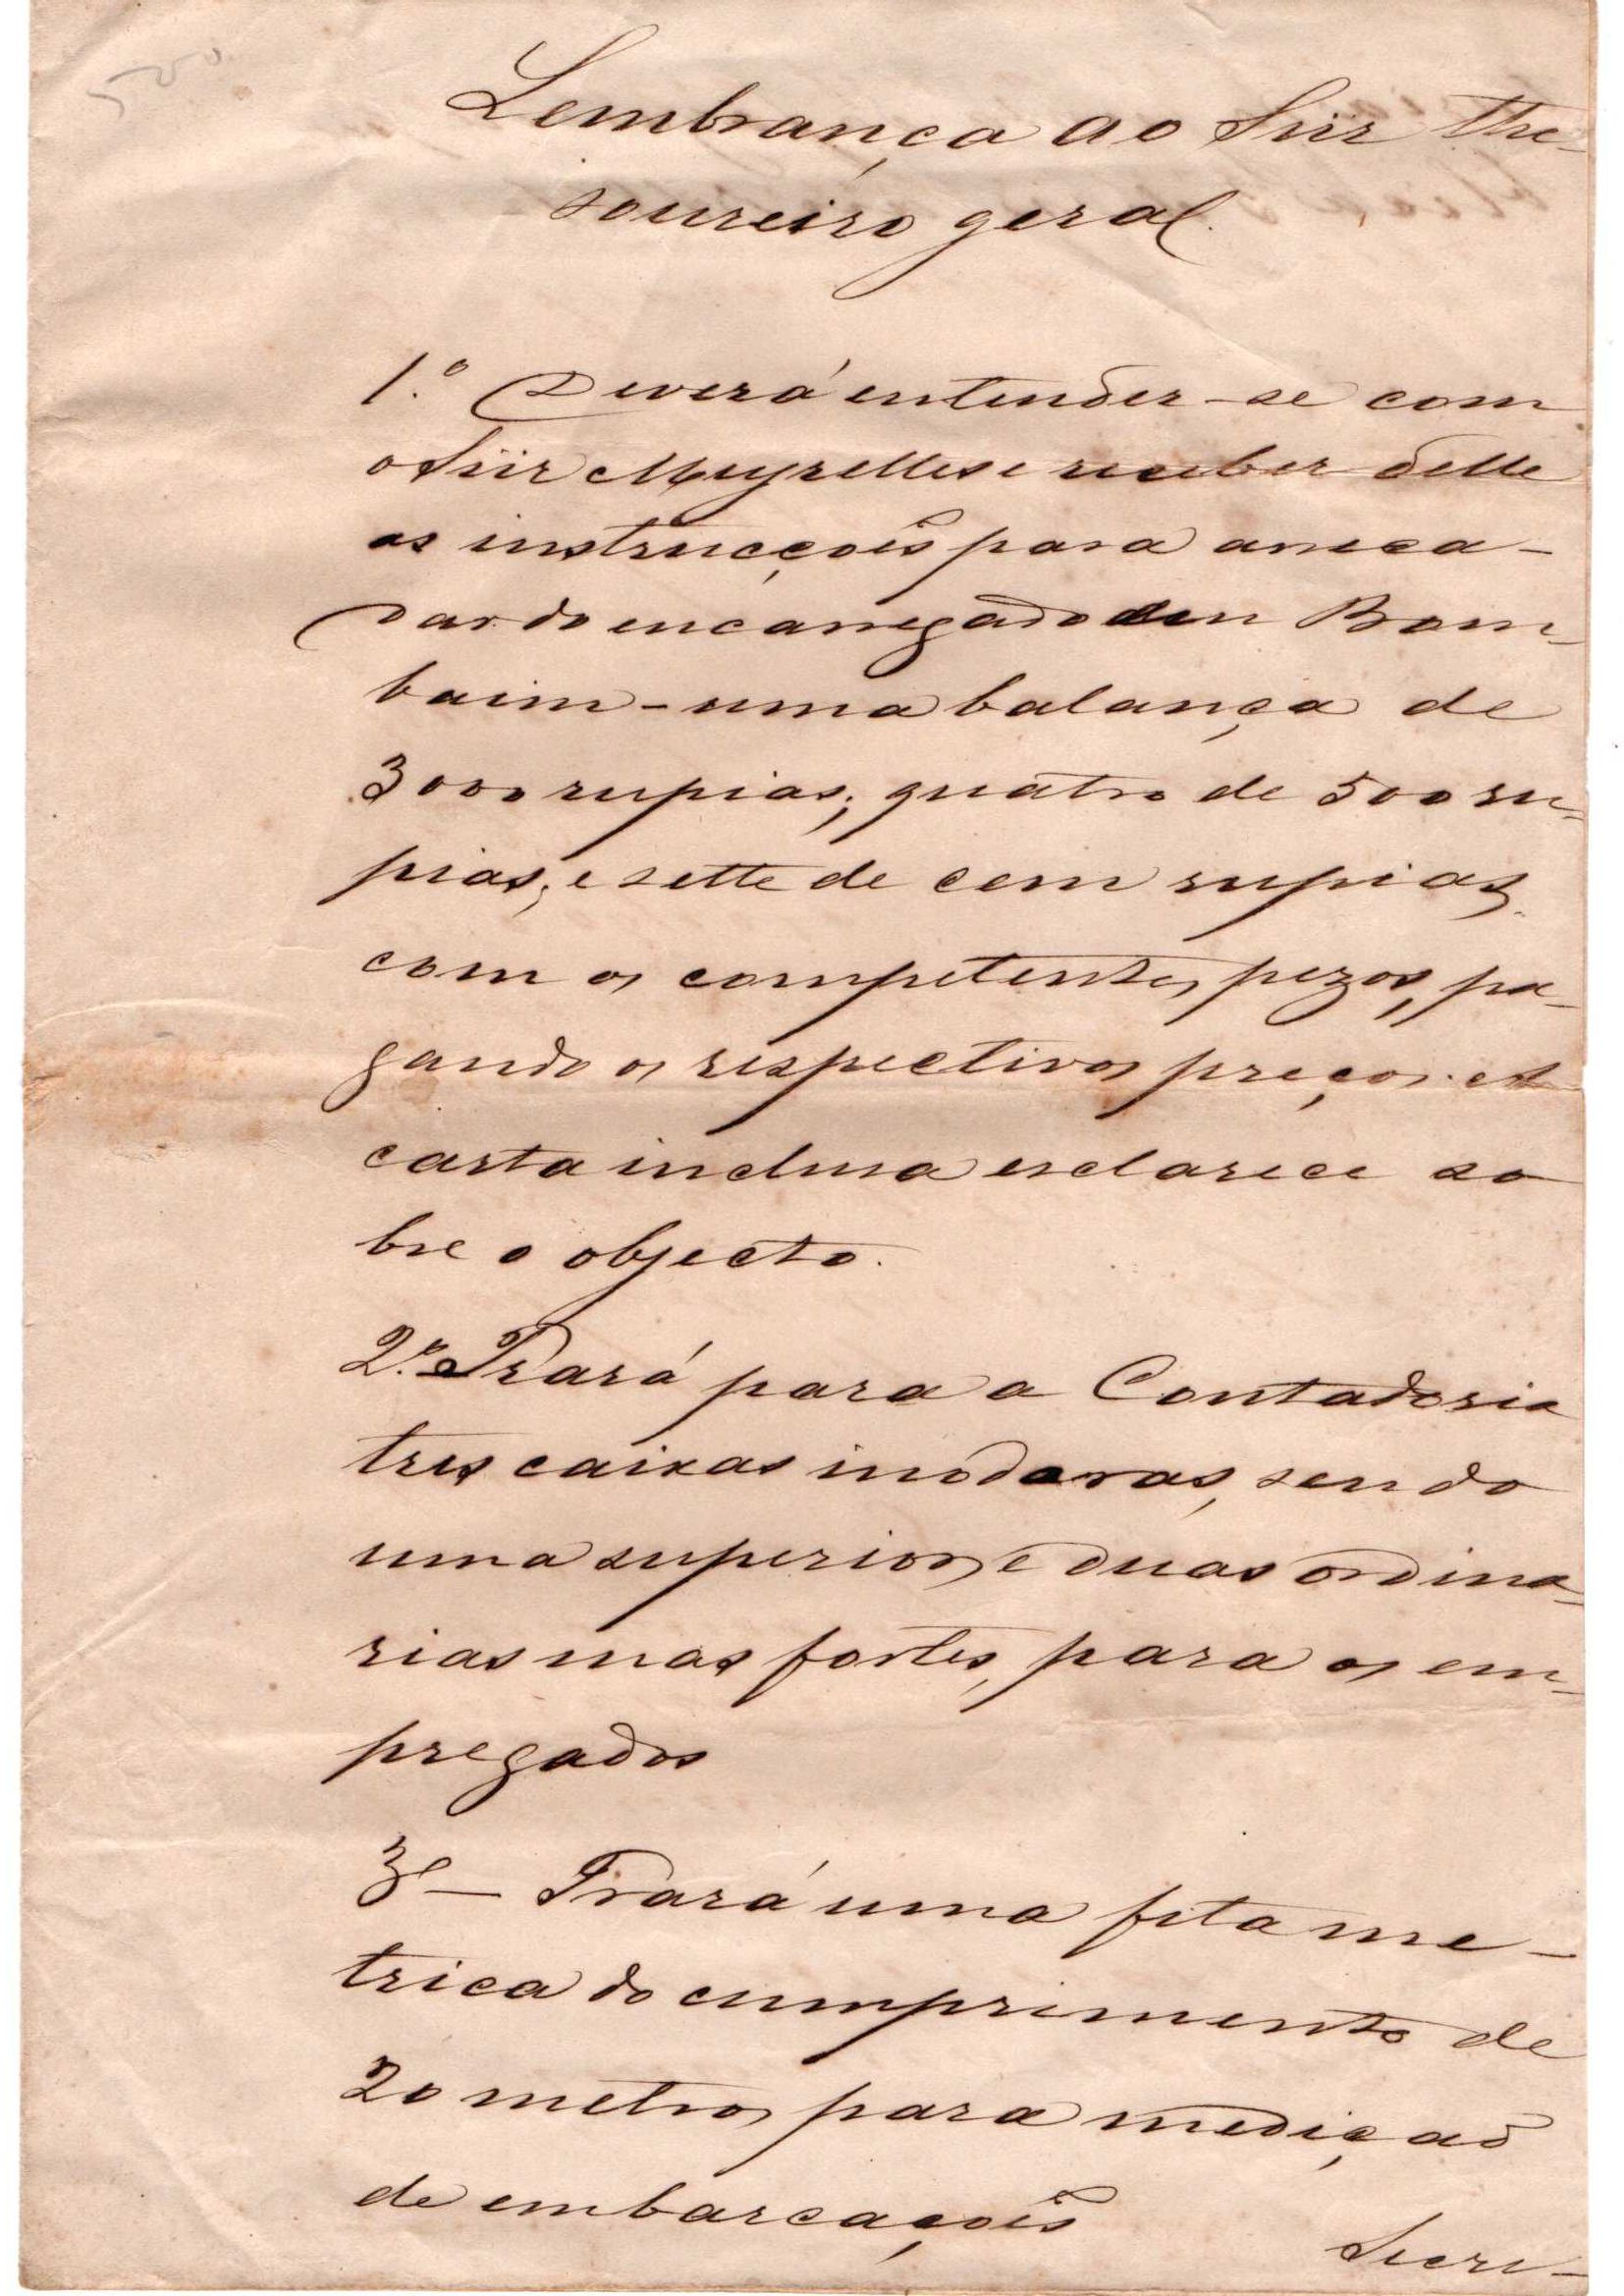 500
Lembrança ao Snr The-
soureiro geral.
1.º Deverá entender-se com
o Snr Meyrelles e receber delle
as instrucçoẽs para arreca-
dar do encarregado em Bom-
baim - uma balança de
3000 rupias; quatro de 500 ru-
pias; e sette de cem rupias
com os competentes pezos, pa-
gando os respectivos preços. A
carta inclusa esclarece so
bre o objecto.
2.º Trará para a Contadoria
tres caixas inodoras, sendo
uma superior, e duas ordina-
rias mas fortes, para os em-
pregados
3º — Trará uma fita me-
trica do cumprimento de
20 metros para mediçaõ
de embarcaçoẽs
Secre-